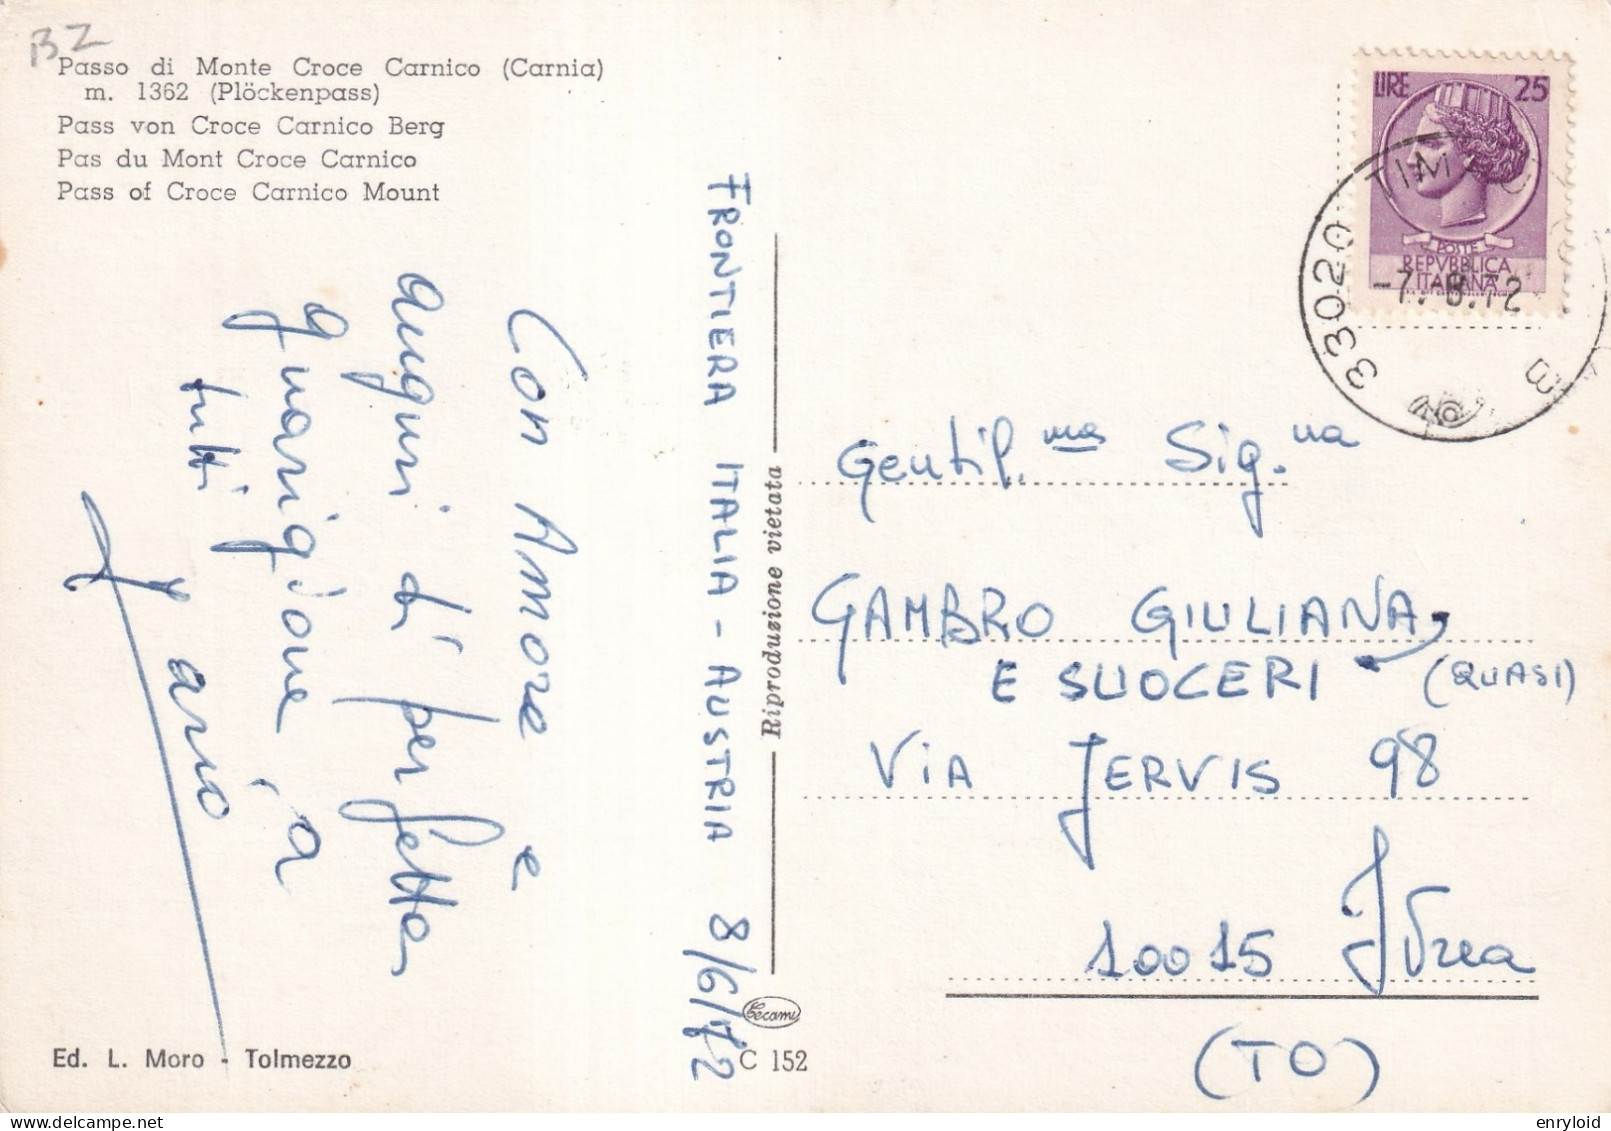 BZ
Passo di Monte Croce Carnico (Carnia)
m. 1362 (Plöckenpass)
Pass von Croce Carnico Berg
Pas du Mont Croce Carnico
Pass of Croce Carnico Mount
Con Amore e
auguri di perfetta
guarigione a
tutti
FRONTIERA ITALIA - AUSTRIA 8/6/72
Riproduzione vietata
Tecami
C 152
Ed. L. Moro - Tolmezzo
LIRE 25
POSTE
REPVBBLICA
ITALIANA
33020 TIMAU
Gentil.ma Sig.na
GAMBRO GIULIANA
E SUOCERI (QUASI)
VIA JERVIS 98
10015 Ivrea
(TO)
enryloid